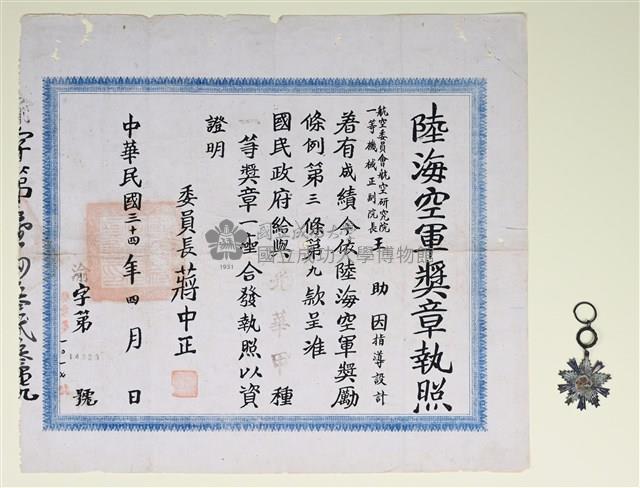 陸海空軍獎章執照
航空委員會航空研究院
一等機械正副院長王助因指導設計
著有成績今依陸海空軍獎勵
條例第三條第九款呈准
國民政府給與光華甲種
一等獎章一座合發執照以資
證明
委員長蔣中正
中華民國三十四年四月 日
渝字第 號
14323
國立成功大學博物館
1931